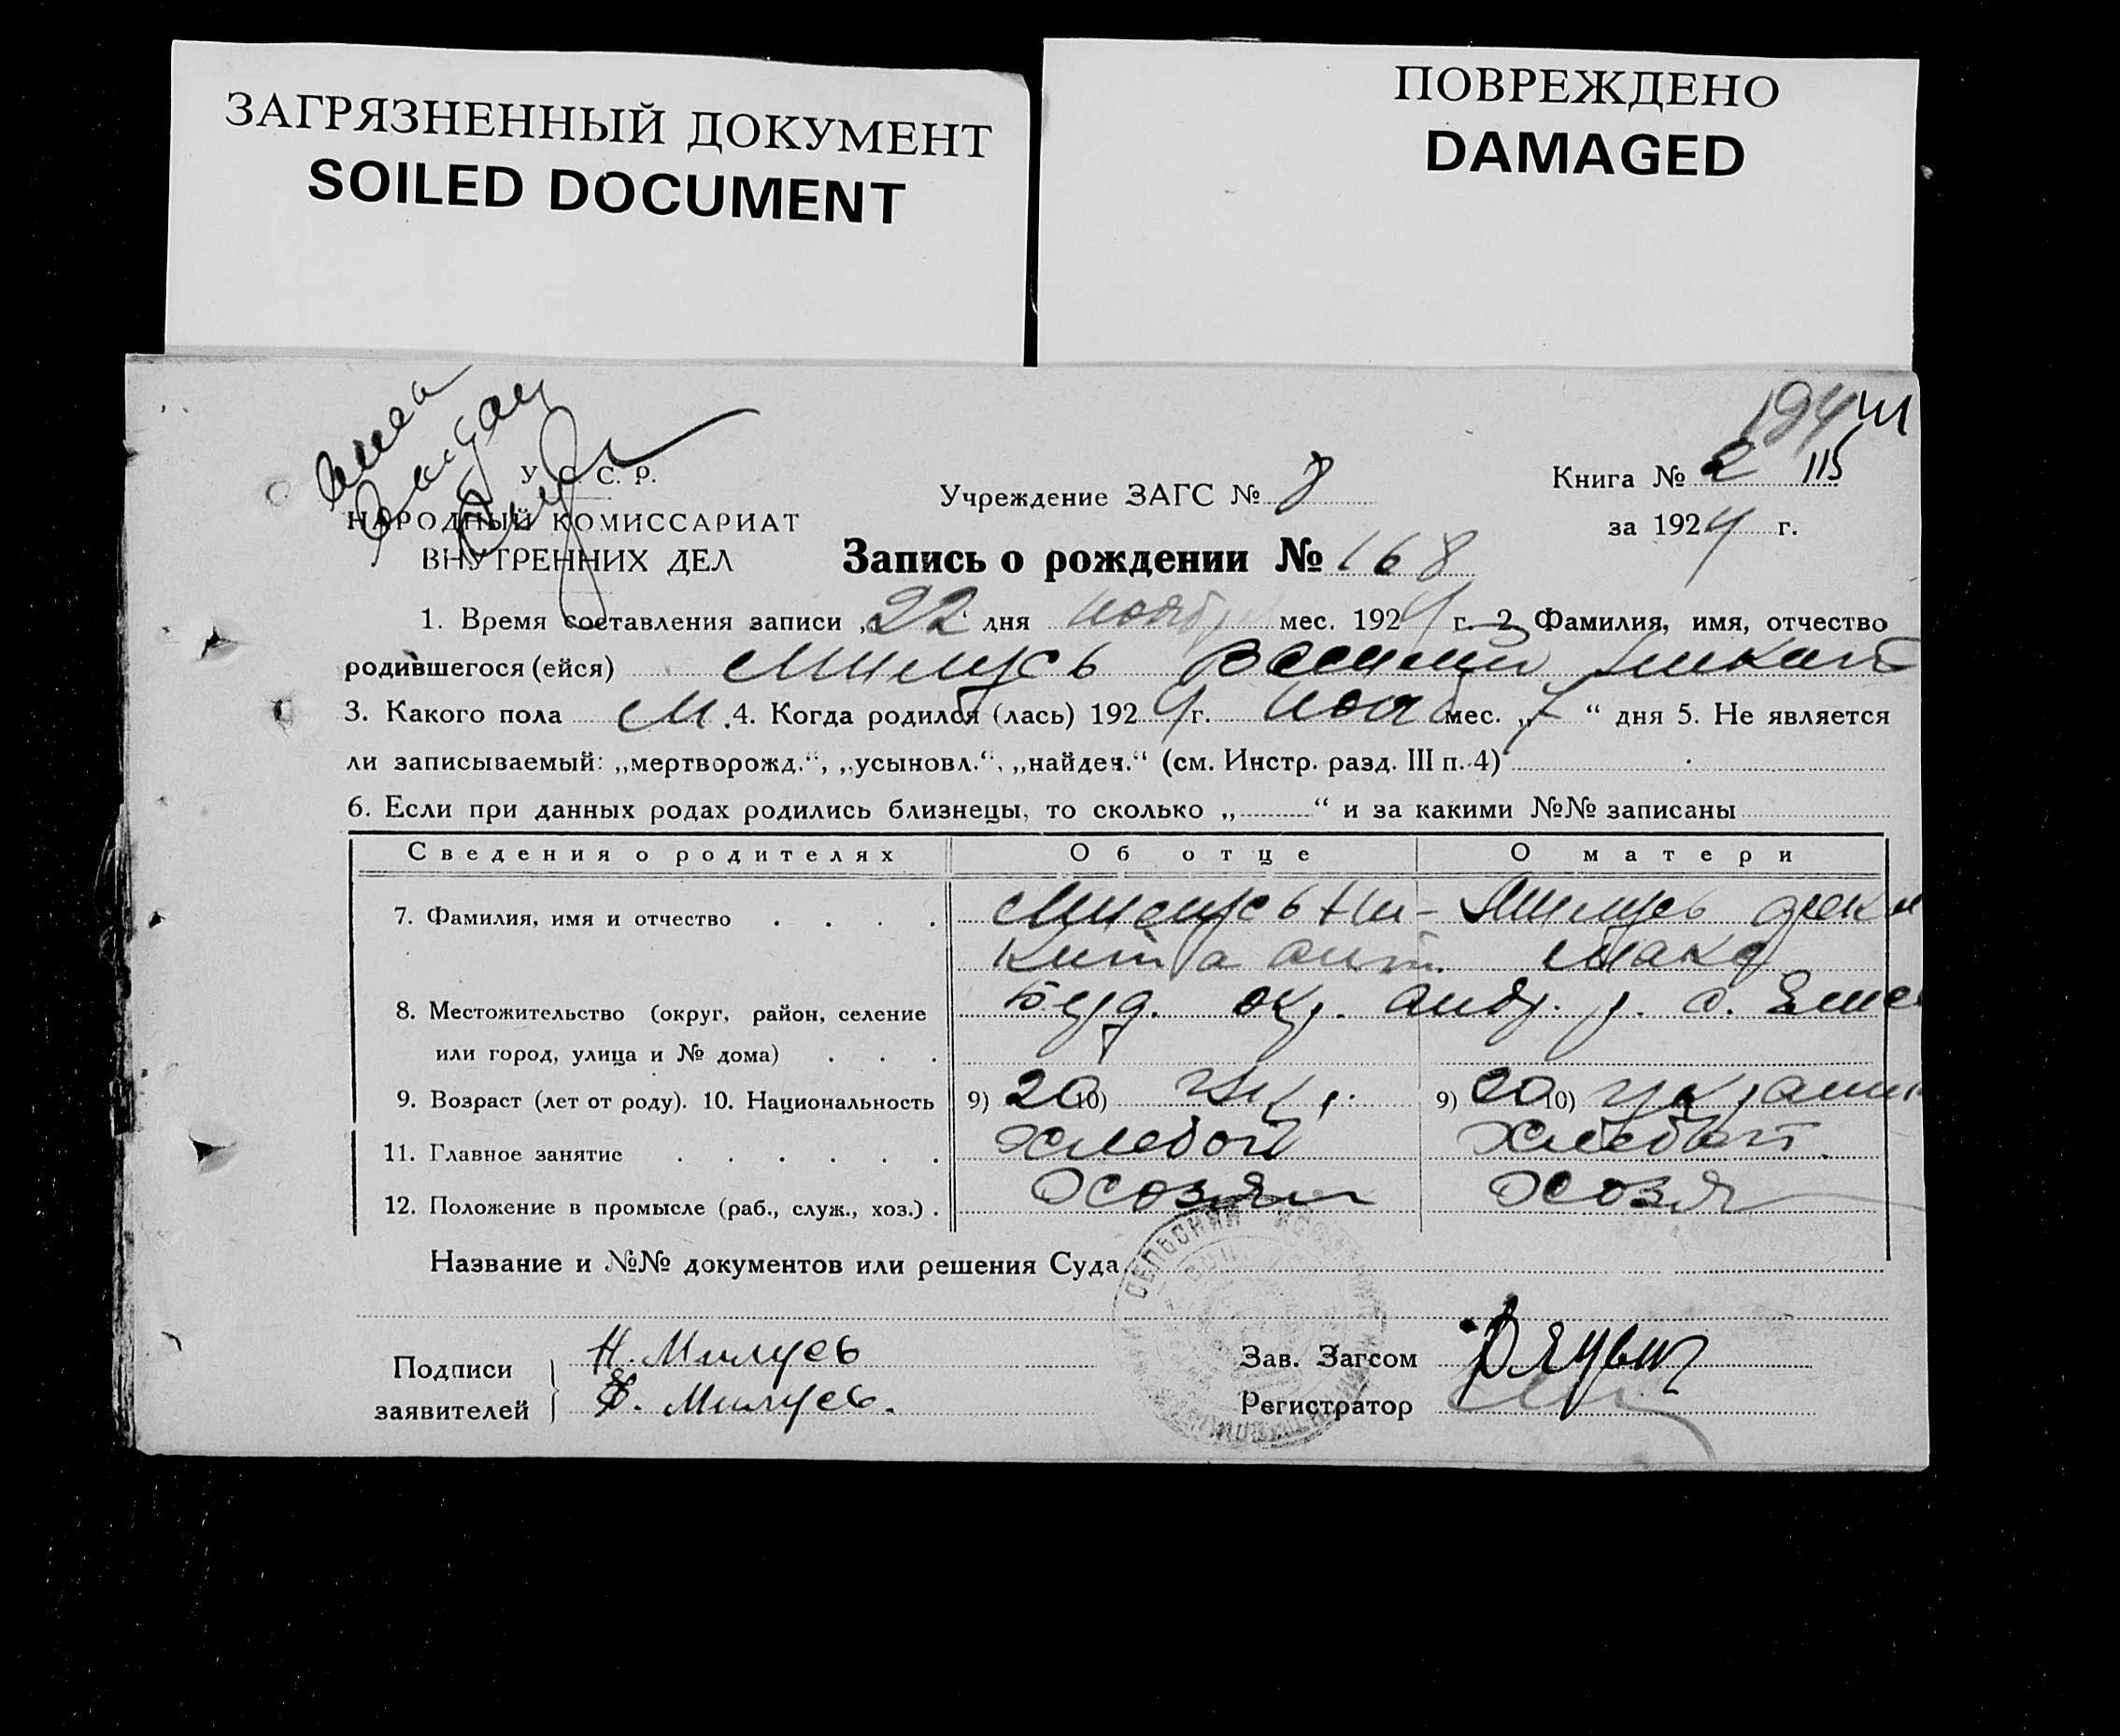 ЗАГРЯЗНЕННЫЙ ДОКУМЕНТ
SOILED DOCUMENT
ПОВРЕЖДЕНО
DAMAGED
У. С. С. Р.
НАРОДНЫЙ КОМИССАРИАТ
ВНУТРЕННИХ ДЕЛ
Учреждение ЗАГС № 8
Книга № 2 115
за 1924 г.
Запись о рождении № 168
1. Время составления записи „22“ дня ноябр мес. 1924 г. 2. Фамилия, имя, отчество
родившегося (ейся) Милусь
3. Какого пола М. 4. Когда родился (лась) 1924 г. нояб мес. „7“ дня 5. Не является
ли записываемый: „мертворожд.“, „усыновл.“, „найден.“ (см. Инстр. разд. III п. 4)
6. Если при данных родах родились близнецы, то сколько „ “ и за какими №№ записаны
Сведения о родителях Об отце О матери
7. Фамилия, имя и отчество Милусь Ни- Милусь
кита ант. Мака
8. Местожительство (округ, район, селение
или город, улица и № дома)
окр. р. с.
9. Возраст (лет от роду). 10. Национальность 9) 20 10) Укр. 9) 20 10) украин
11. Главное занятие хлебоп хлебоп
12. Положение в промысле (раб., служ., хоз.) Хозяин Хозя
Название и №№ документов или решения Суда
Подписи заявителей
Н. Милусь
Милусь.
Зав. Загсом
Регистратор